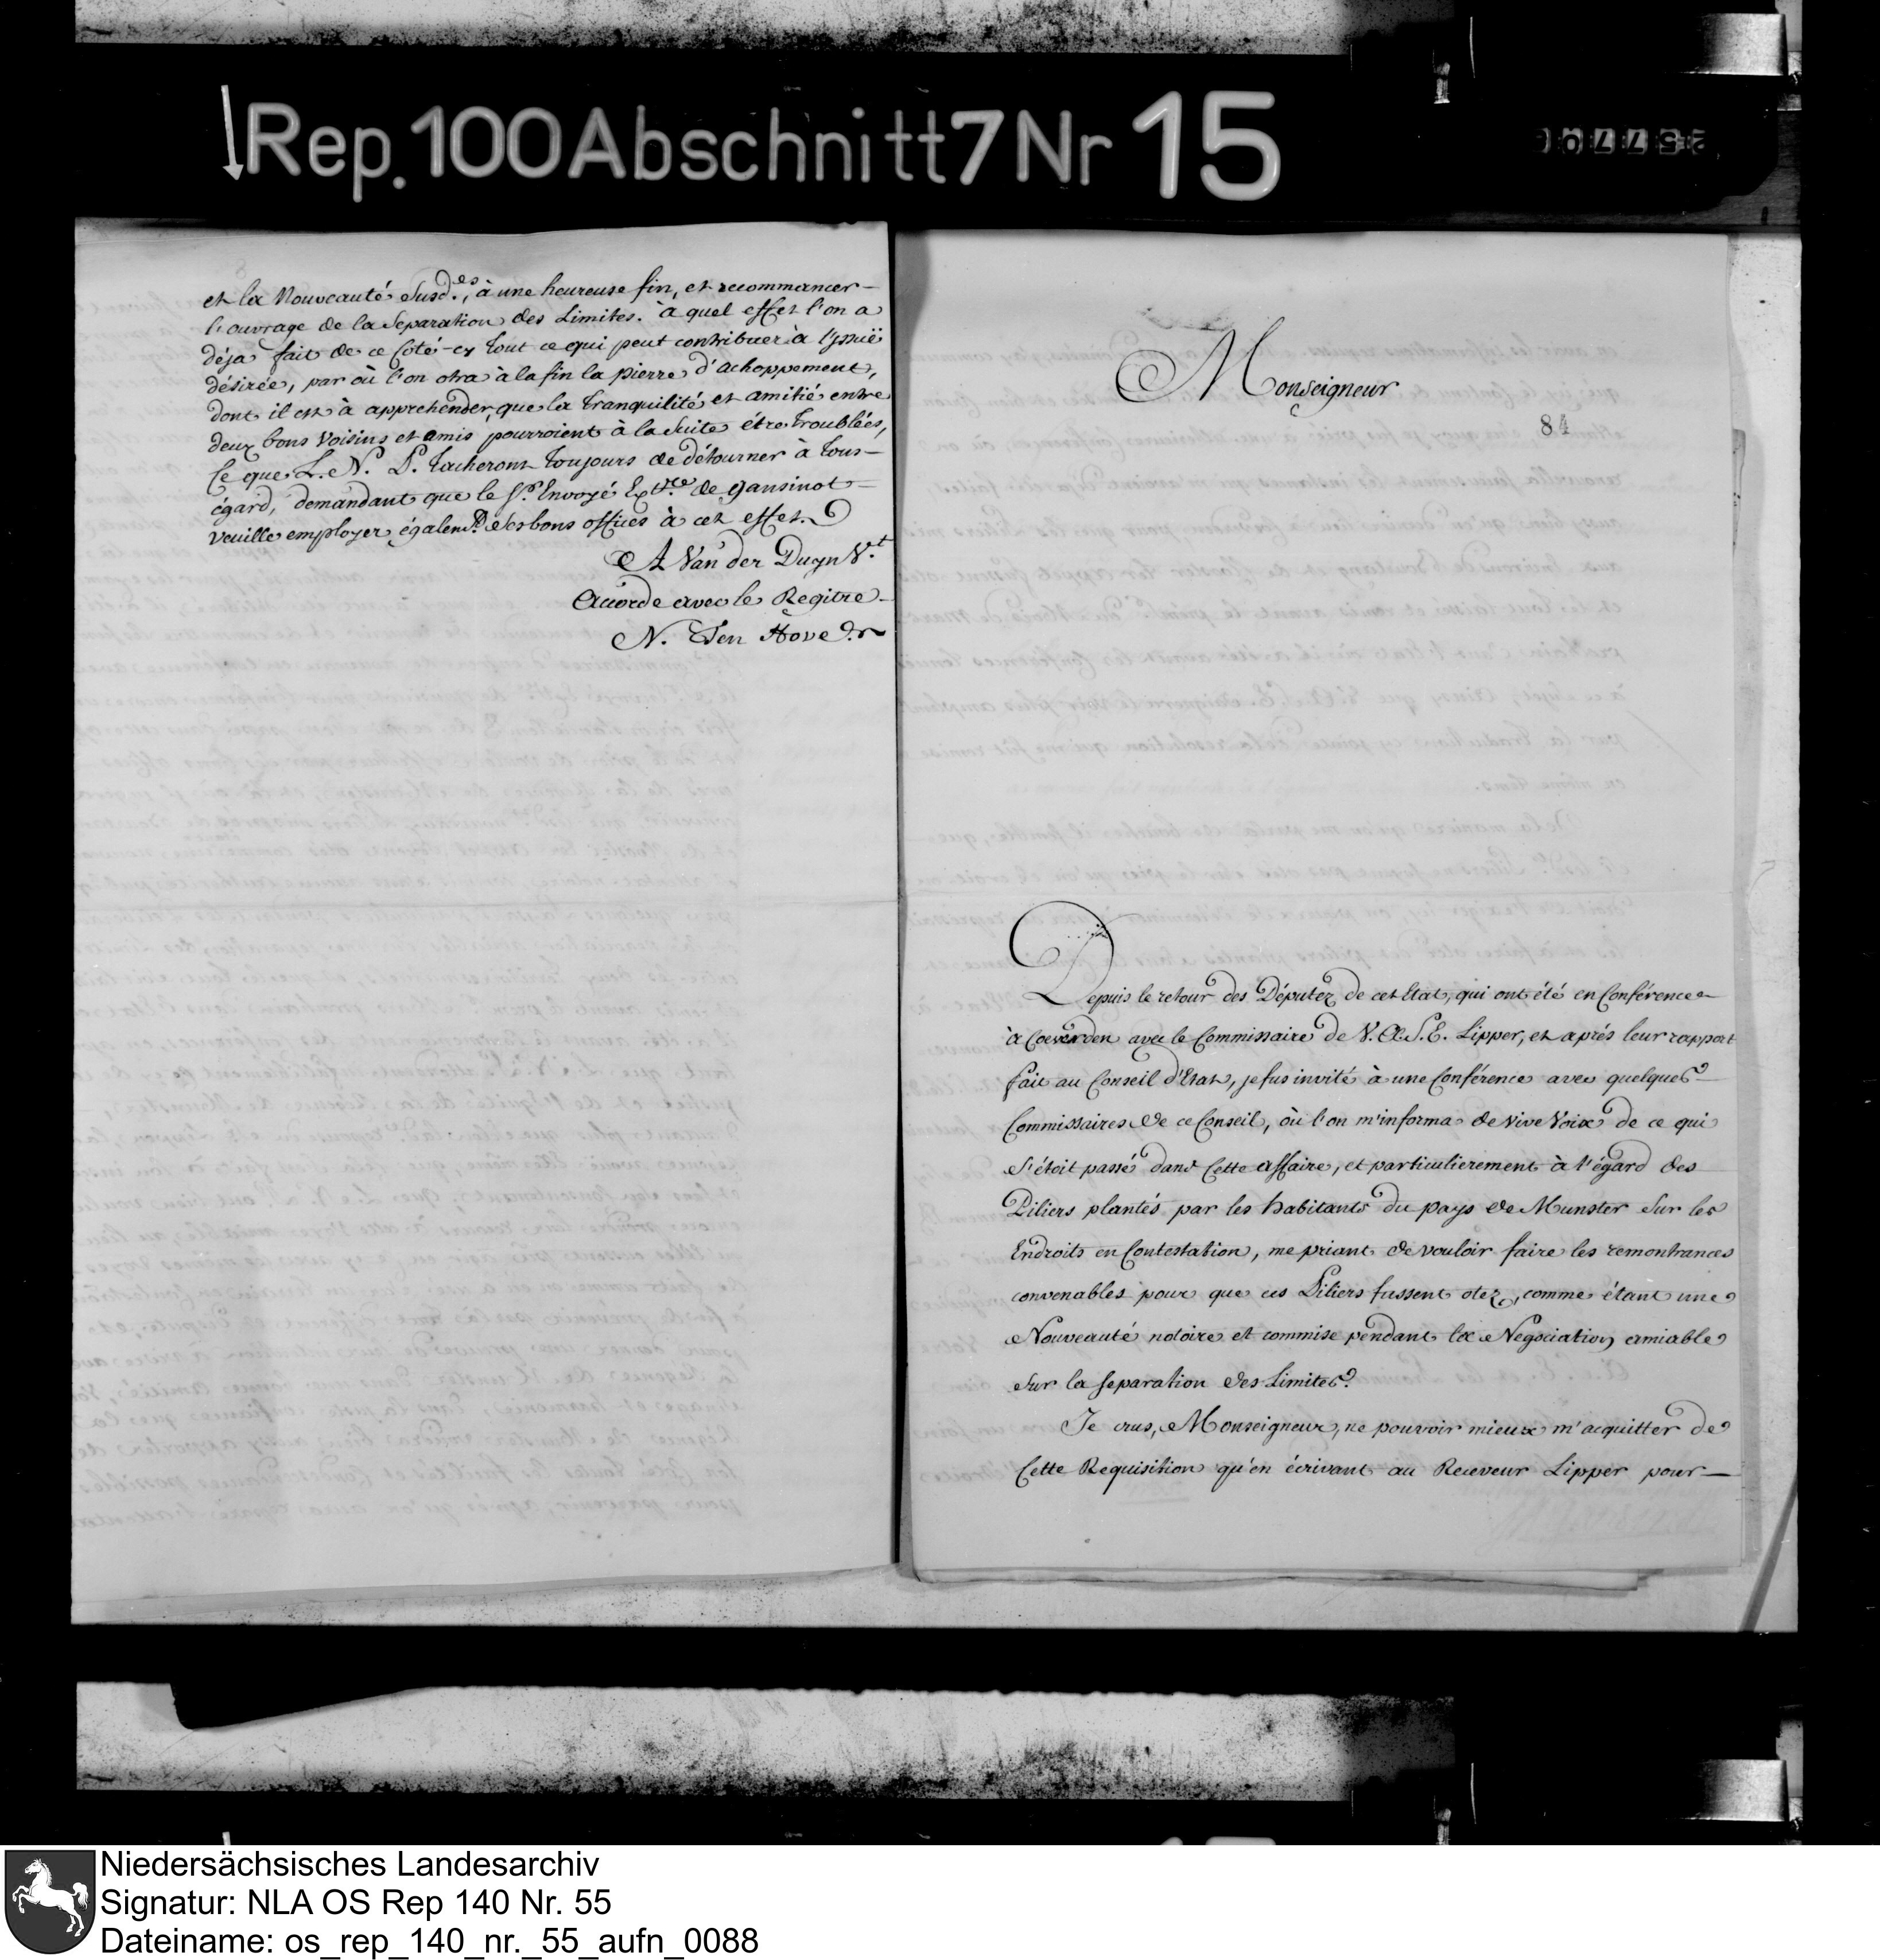 Rep. 100 Abschnitt 7 Nr 15
et la Nouveauté Susd.es, à une heureuse fin, et recommancer
l'ouvrage de la Separation des Limites. à quel effet l'on a
déja fait de ce Coté-cy tout ce qui peut contribuer à l'yssuë
désirée, par où l'on otra à la fin la pierre d'achoppement,
dont il est à apprehender, que la tranquilité et amitié entre
deux bons Voisins et amis pourroient à la Suite étre troublées,
Ce que L. N. P. tacheront toujours de détourner à tous
égard, demandant que le Sr. Envoyé Extre. de Gansinot
veuille employer égalemt. Ses bons offices à cet effet.
A Van der Duyn Vt.
Accorde avec le Regitre
N. Ten Hove
Monseigneur
84
Depuis le retour des Députez de cet Etat, qui ont été en Conférence
à Coeverden avec le Commissaire de V. A. S. E. Lipper, et aprés leur rapport
fait au Conseil d'Etat, je fus invité à une Conférence avec quelques
Commissaires de ce Conseil, où l'on m'informa de Vive Voix de ce qui
s'étoit passé dans Cette affaire, et particulierement à l'égard des
Piliers plantés par les habitants du pays de Munster Sur les
Endroits en Contestation, me priant de vouloir faire les remontrances
convenables pour que ces Piliers fussent otez, comme étant une
Nouveauté notoire et commise pendant la Negociation amiable
Sur la Separation des Limites.
Je crus, Monseigneur, ne pouvoir mieux m'acquitter de
Cette Requisition qu'en écrivant au Receveur Lipper pour
Niedersächsisches Landesarchiv
Signatur: NLA OS Rep 140 Nr. 55
Dateiname: os_rep_140_nr._55_aufn_0088